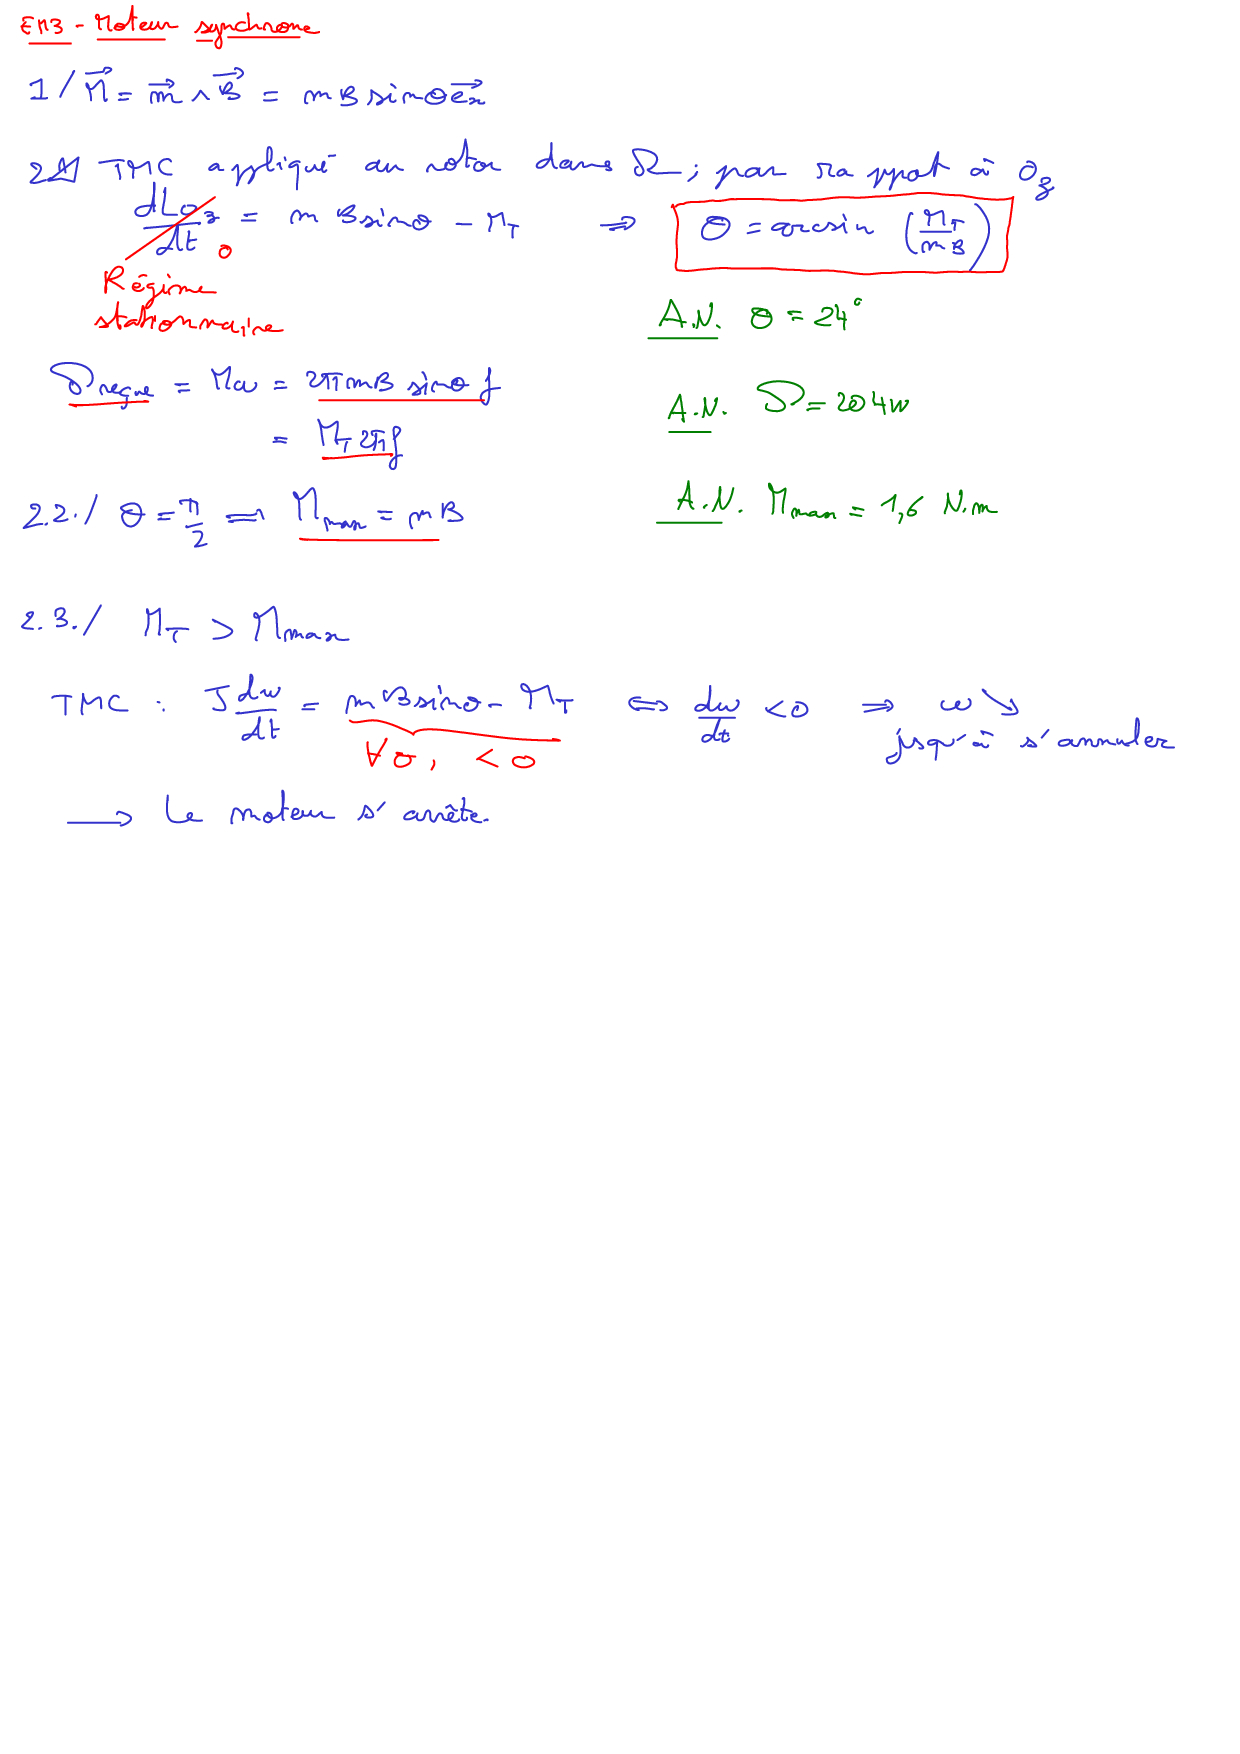 EM3 - Moteur synchrone
1/ M⃗ = m⃗ ∧ B⃗ = mB sinθ e⃗z
2.1/ TMC appliqué au rotor dans R ; par rapport à Oz
dLoz/dt = mB sinθ - M_T ⇒ θ = arcsin (M_T/mB)
0
Régime
stationnaire
A.N. θ = 24°
P reçue = Mω = 2π mB sinθ f
A.N. P = 204W
= M_T 2πf
2.2./ θ = π/2 ⇒ M_max = mB
A.N. M_max = 1,6 N.m
2.3./ M_T > M_max
TMC : J dω/dt = mB sinθ - M_T ⇔ dω/dt < 0 ⇒ ω ↘
∀θ, < 0
jsqu'à s'annuler
⟶ Le moteur s'arrête.